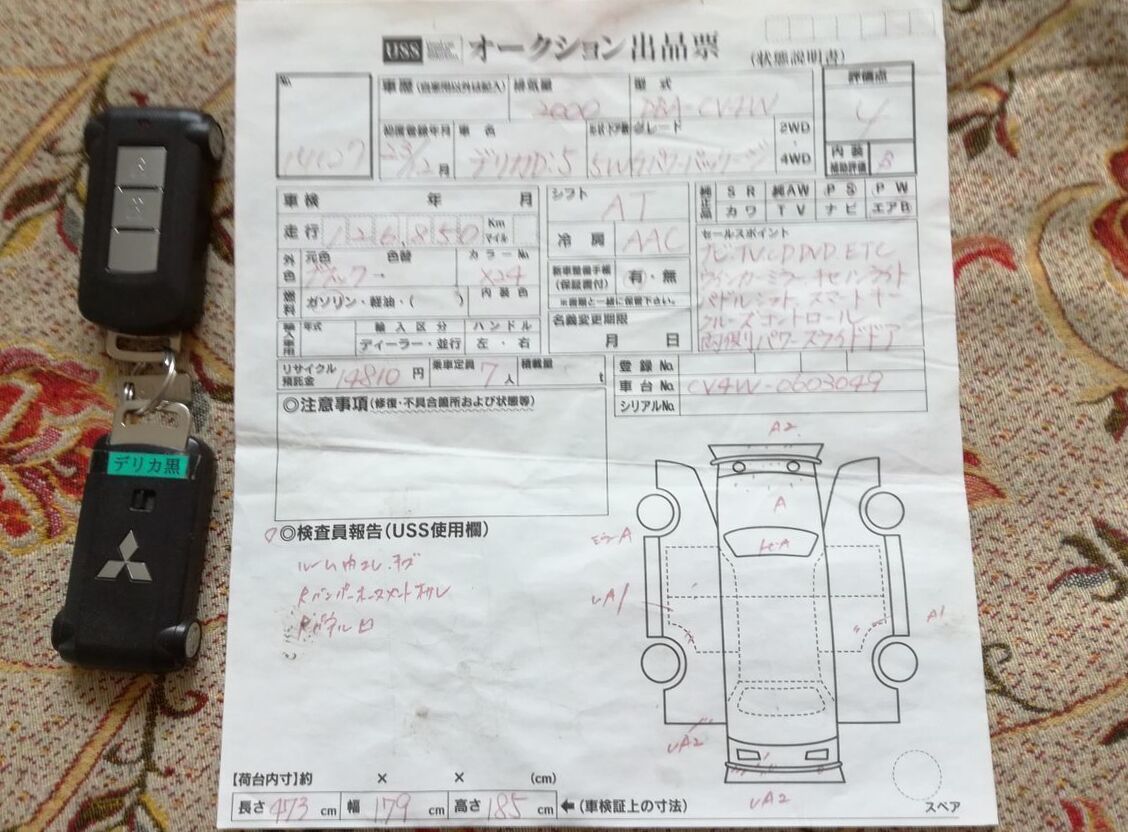 USS オークション出品票 (状態説明書)
No. 車歴(自家用以外は記入) 排気量 型式 評価点
2000 DBA-CV4W 4
初度登録年月 車名 形状・ドア数 グレード 2WD・4WD 内装補助評価 B
23/12月 デリカD:5 5W パワーパッケージ
車検 年 月
走行 126,850 Km マイル
外色 元色 色替 カラーNo.
ブラック→ X24
燃料 ガソリン・軽油・( ) 内装色
輸入車用 年式 輸入区分 ハンドル
ディーラー・並行 左・右
リサイクル預託金 14810円 乗車定員 7人 積載量 t
シフト AT
冷房 AAC
新車整備手帳(保証書付) 有・無
※書類と一緒に保管下さい。
名義変更期限
月 日
純正品 SR 純AW PS PW
カワ TV ナビ エアB
セールスポイント
ナビTV.CD DVD.ETC
ウィンカーミラー
パドルシフト スマートキー
クルーズコントロール
両側パワースライドドア
登録No.
車台No. CV4W-0603049
シリアルNo.
◎注意事項(修復・不具合箇所および状態等)
◎検査員報告(USS使用欄)
A2
A
ミラーA
A1
UA2
UA2
スペア
【荷台内寸】約 × × (cm)
長さ 473 cm 幅 179 cm 高さ 185 cm ←(車検証上の寸法)
デリカ黒